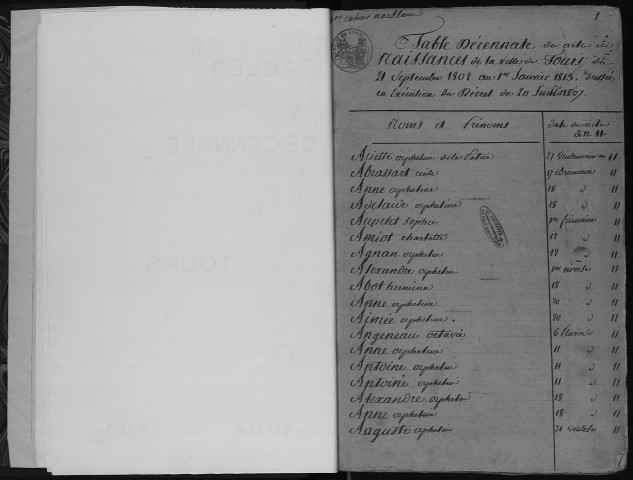 1er cahier naissance
1
Table Décennale des actes de
Naissances de la ville de Tours du
21 Septembre 1802 au 1er Janvier 1813. dressée
en Exécution du Décret du 20 Juillet 1807.
Noms et Prénoms Date des actes
an 11
Ariette orphelin de la Patrie 27 Vendemiaire 11
Abrassart 9 Brumaire 11
Anne orpheline 18 " 11
Adelaide orpheline 18 " 11
Aupetit Sophie 1er frimaire 11
Amiot charlotte 12 " 11
Agnan orphelin 12 " 11
Alexandre orphelin 1er nivose 11
Abot 18 " 11
Anne orpheline 20 " 11
Aimée orpheline. 20 " 11
Angeneau octavie 6 Pluviose 11
Anne orpheline 11 " 11
Antoine orphelin 11 " 11
Antoine orphelin 11 " 11
Alexandre orphelin 18 " 11
Anne orpheline 18 " 11
Auguste orphelin 21 ventose 11
TABLES
DECENNALE
TOURS
1802